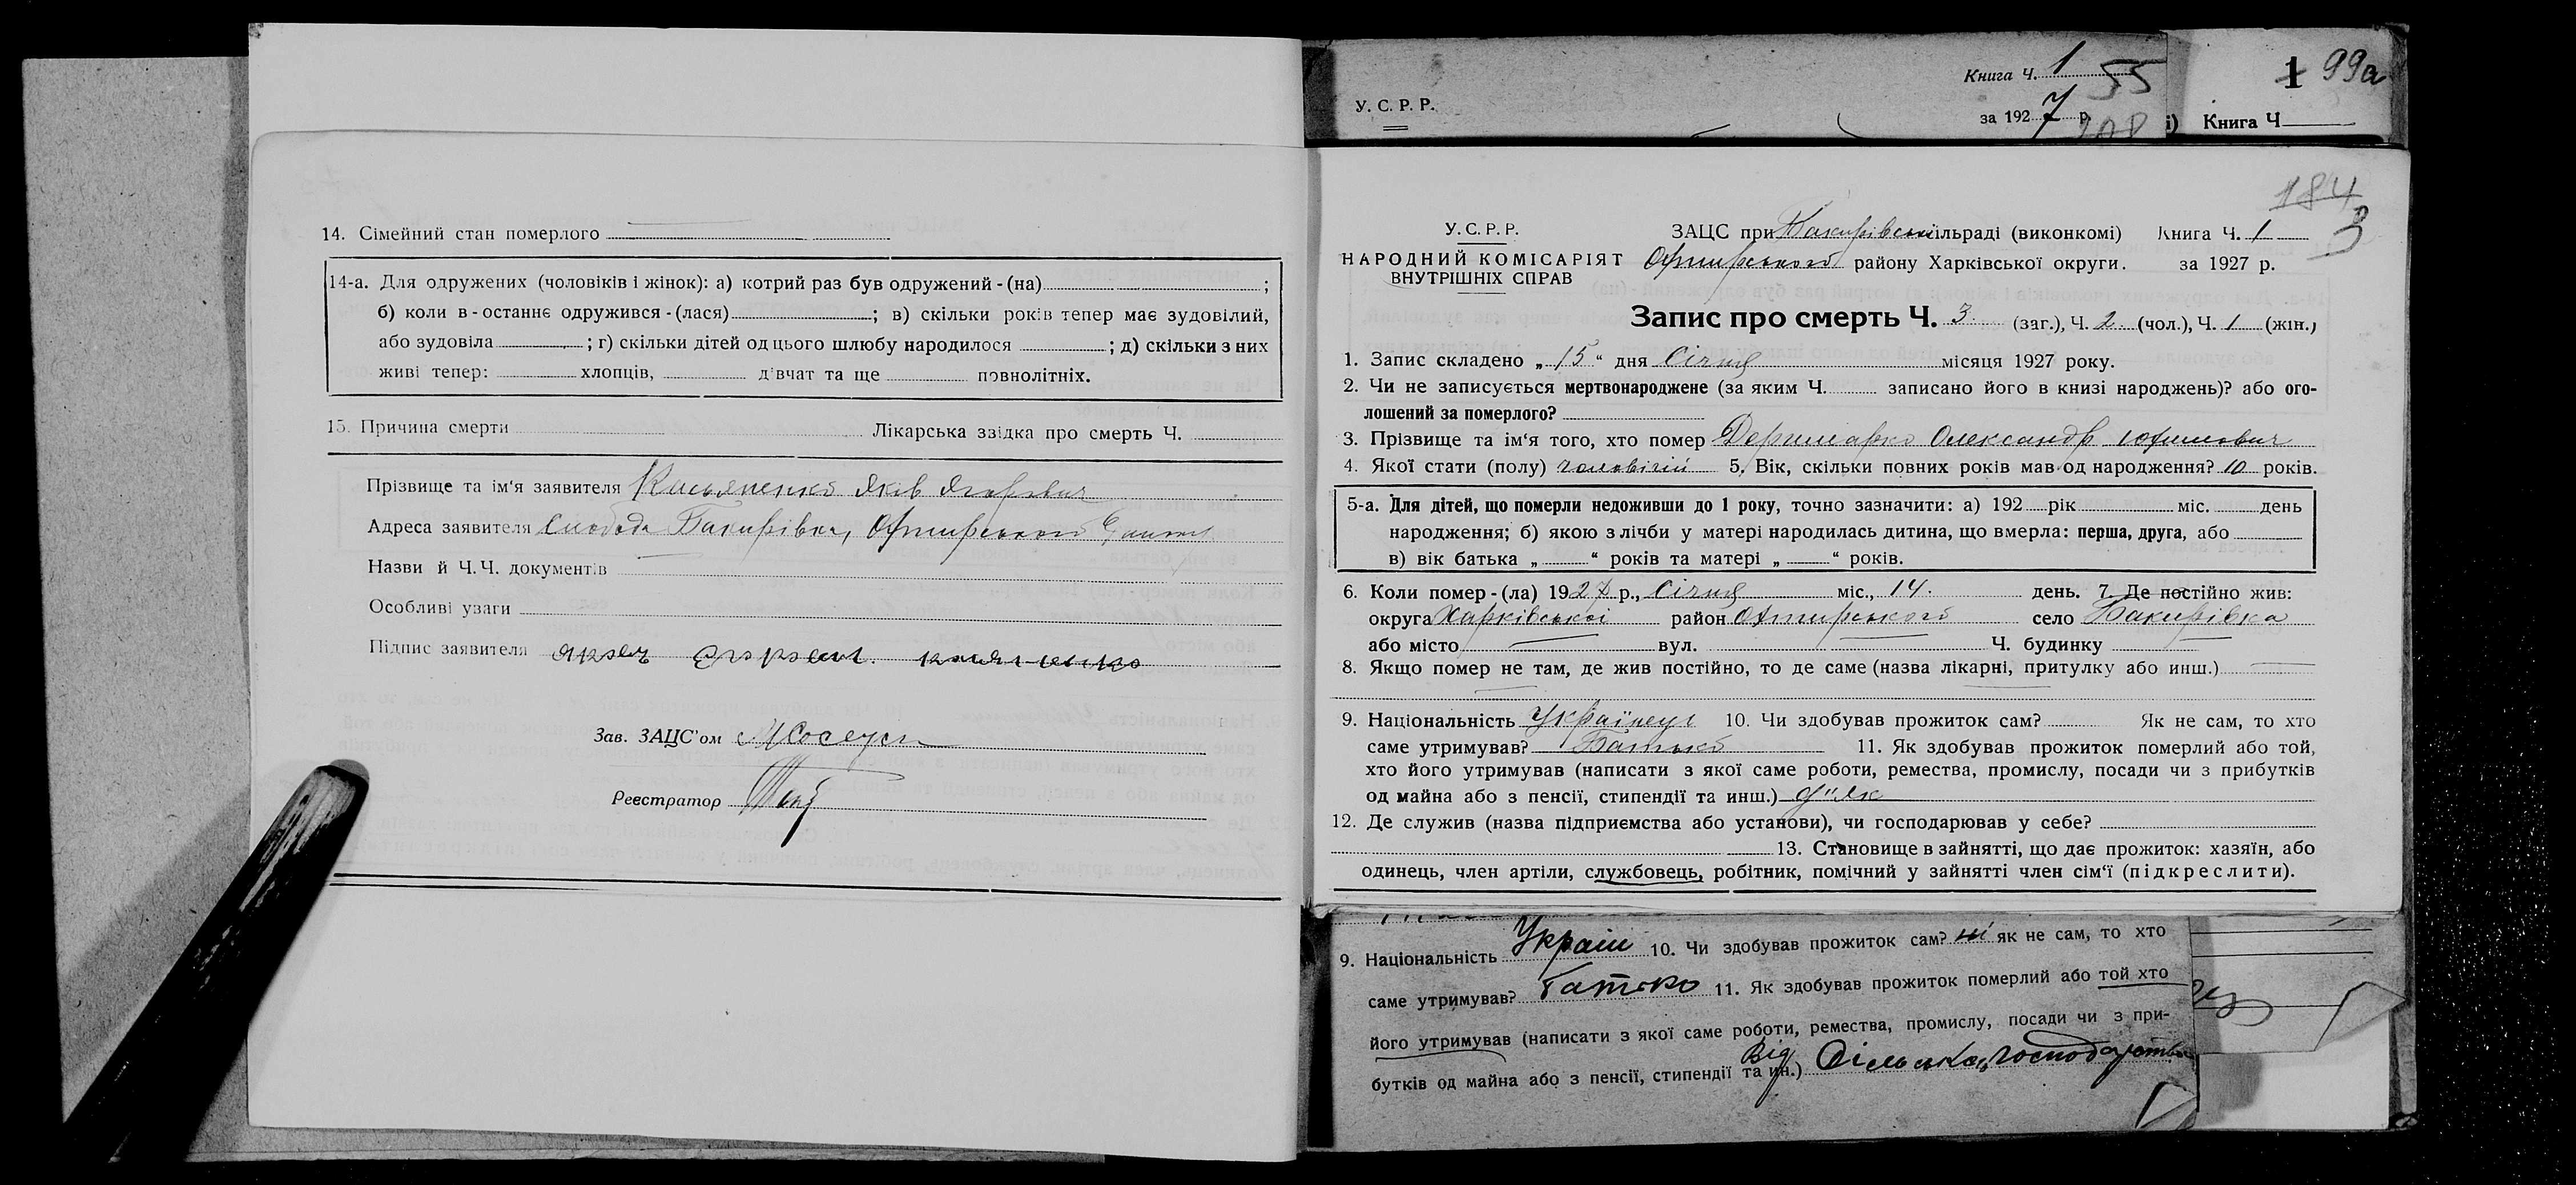 14. Сімейний стан померлого
14-а. Для одружених (чоловіків і жінок): а) котрий раз був одружений-(на) ;
б) коли в-останнє одружився-(лася) ; в) скільки років тепер має зудовілий,
або зудовіла ; г) скільки дітей од цього шлюбу народилося ; д) скільки з них
живі тепер: хлопців, дівчат та ще повнолітніх.
15. Причина смерти Лікарська звідка про смерть Ч.
Прізвище та ім'я заявителя Касьяненко Яків Ягорович
Адреса заявителя Слобода Бакирівка, Охтирського
Назви й Ч.Ч. документів
Особливі узаги
Підпис заявителя
Зав. ЗАЦС'ом
Реєстратор
У. С. Р. Р.
Книга Ч. 1 55
за 1927 р.
1 99а
і) Книга Ч
184
3
У. С. Р. Р.
НАРОДНИЙ КОМІСАРІЯТ
ВНУТРІШНІХ СПРАВ
ЗАЦС при Бакирівській сільраді (виконкомі) Книга Ч. 1
Охтирського району Харківської округи. за 1927 р.
Запис про смерть Ч. 3 (заг.), Ч. 2 (чол.), Ч. 1 (жін.)
1. Запис складено „15“ дня Січня місяця 1927 року.
2. Чи не записується мертвонароджене (за яким Ч. записано його в книзі народжень)? або ого-
лошений за померлого?
3. Прізвище та ім'я того, хто помер Олександр Юхимович
4. Якої стати (полу) чоловічій 5. Вік, скільки повних років мав од народження? 10 років.
5-а. Для дітей, що померли недоживши до 1 року, точно зазначити: а) 192 рік міс. день
народження; б) якою з лічби у матері народилась дитина, що вмерла: перша, друга, або
в) вік батька „ “ років та матері „ “ років.
6. Коли помер-(ла) 1927 р., Січня міс., 14. день. 7. Де постійно жив:
округа Харківської район Охтирського село Бакирівка
або місто вул. Ч. будинку
8. Якщо помер не там, де жив постійно, то де саме (назва лікарні, притулку або инш.)
9. Національність Українець 10. Чи здобував прожиток сам? Як не сам, то хто
саме утримував? Батько 11. Як здобував прожиток померлий або той,
хто його утримував (написати з якої саме роботи, ремества, промислу, посади чи з прибутків
од майна або з пенсії, стипендії та инш.) д"як
12. Де служив (назва підприємства або установи), чи господарював у себе?
13. Становище в зайнятті, що дає прожиток: хазяїн, або
одинець, член артіли, службовець, робітник, помічний у зайнятті член сім'ї (підкреслити).
9. Національність Украін 10. Чи здобував прожиток сам? ні як не сам, то хто
саме утримував? Батько 11. Як здобував прожиток померлий або той хто
його утримував (написати з якої саме роботи, ремества, промислу, посади чи з при-
бутків од майна або з пенсії, стипендії та ин.) Від Сільського господарства